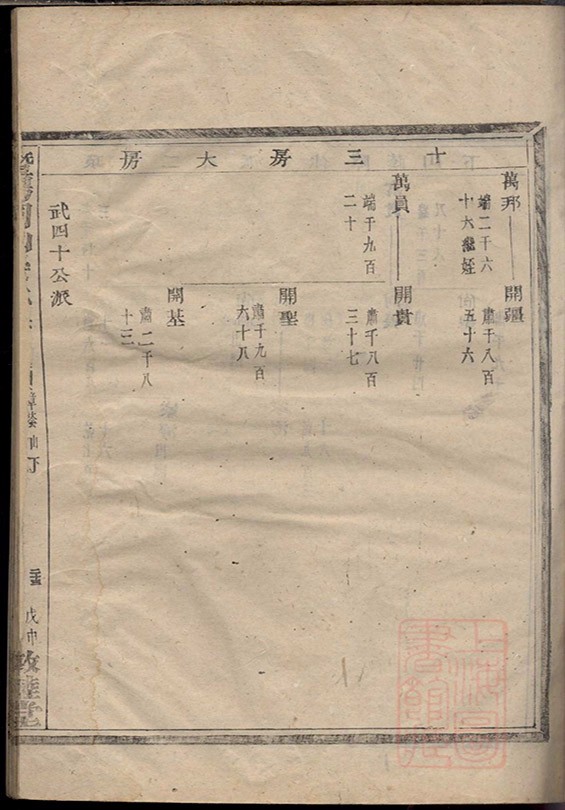 十三房大二房
萬邦
端二千六
十六繼姪
開疆
肅千八百
五十六
萬員
端千九百
二十
開貴
肅千八百
三十七
開聖
肅千九百
六十八
開基
肅二千八
十三
武四十公派
戊申
敦睦堂
上海圖書館藏